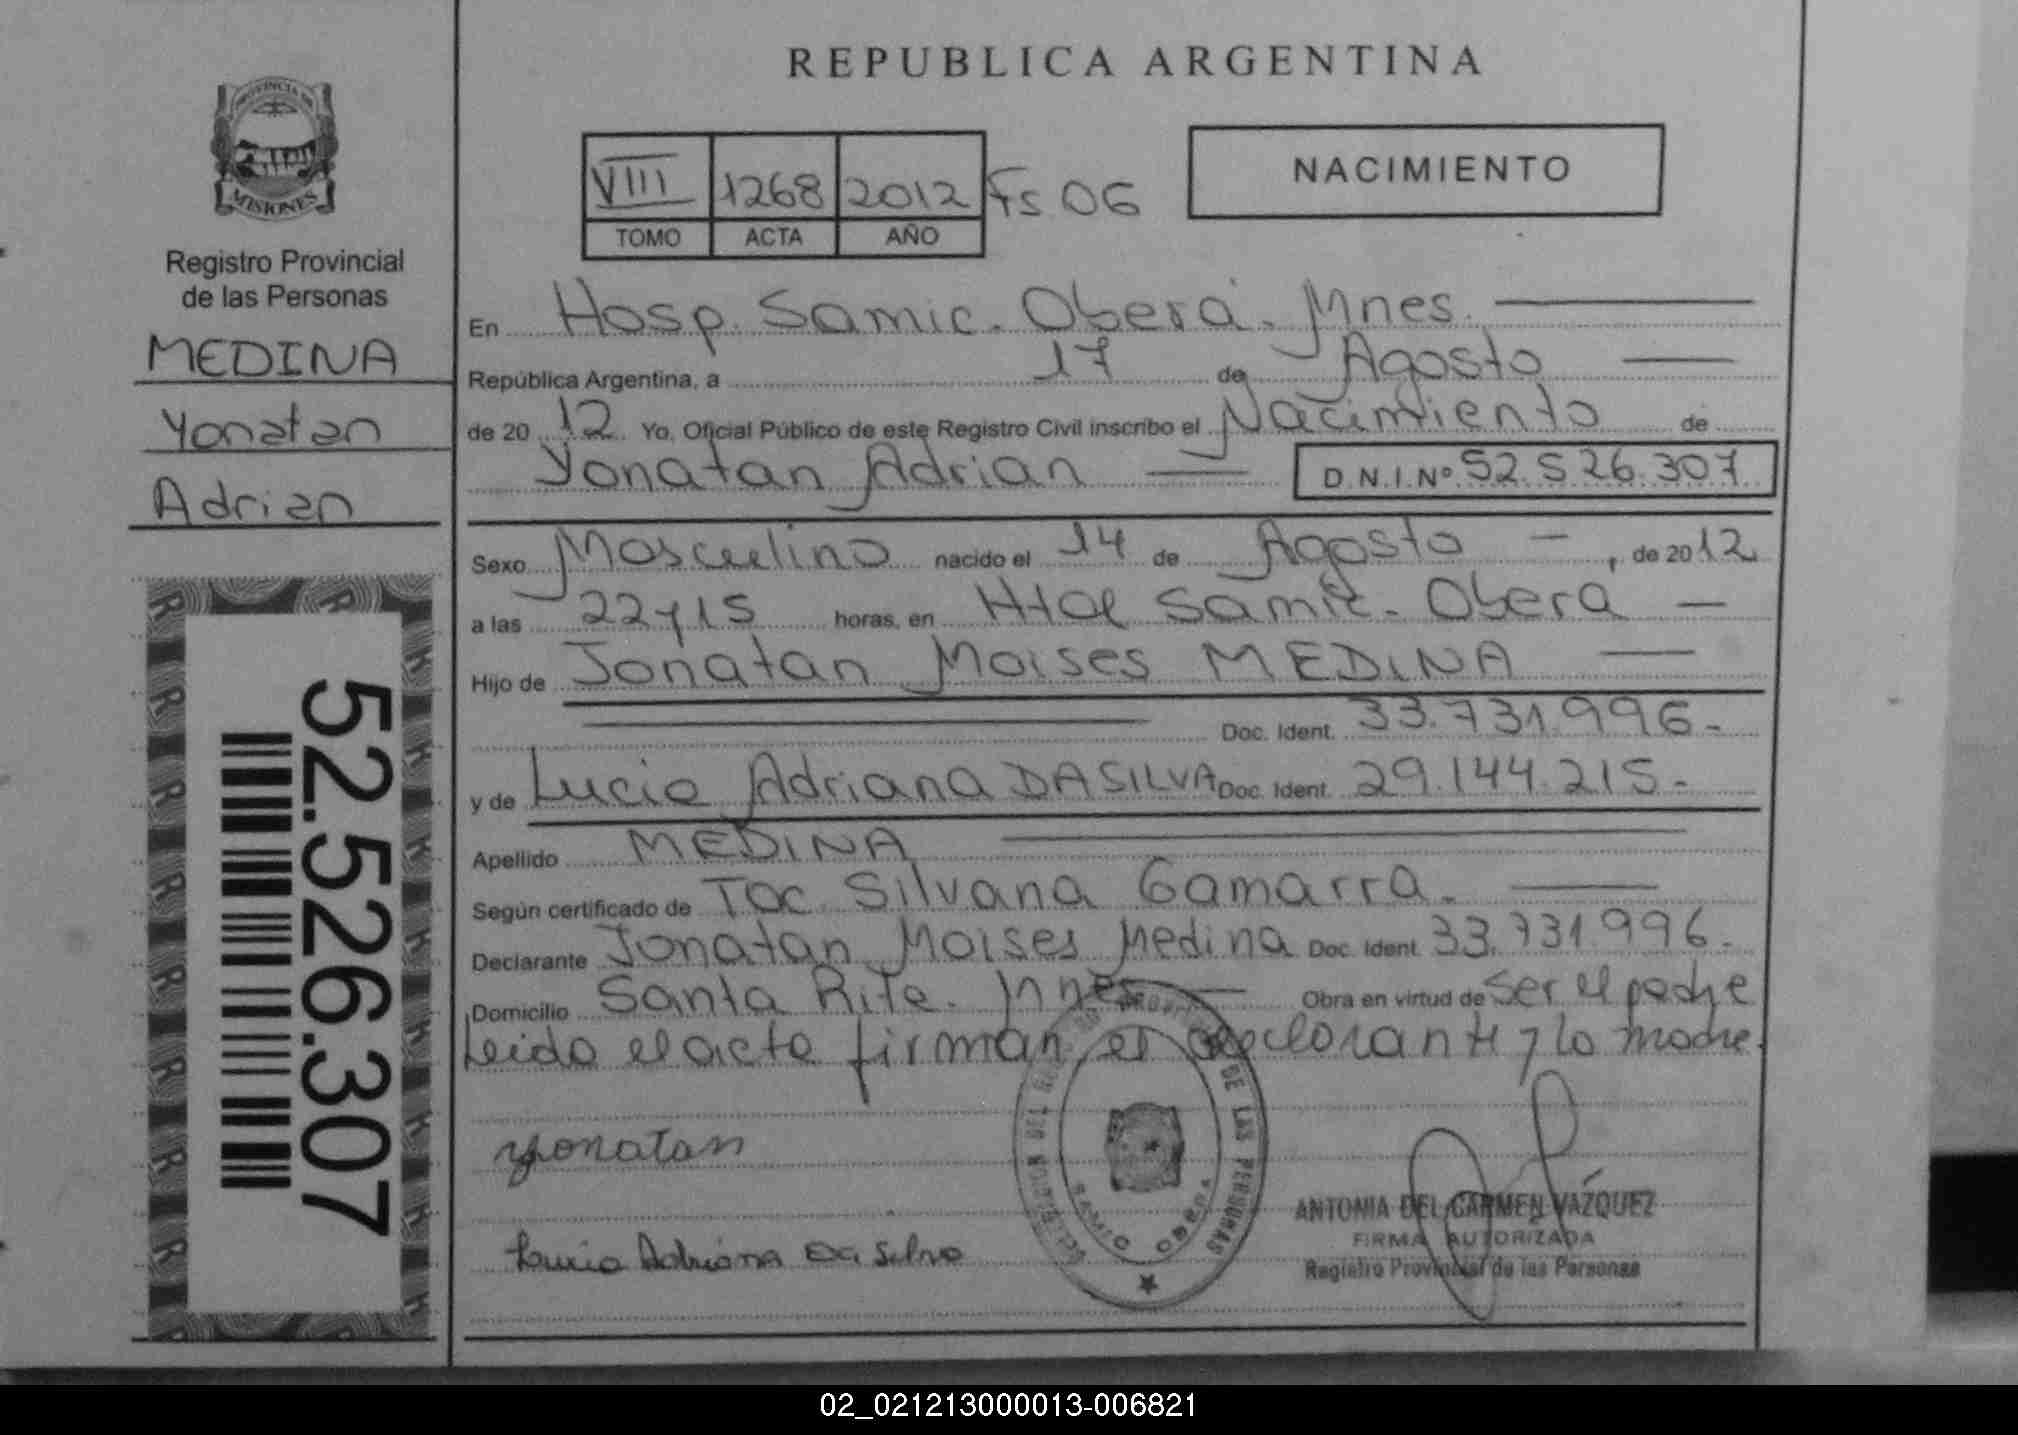 REPUBLICA ARGENTINA
PROVINCIA DE
MISIONES
Registro Provincial
de las Personas
MEDINA
Yonatan
Adrian
52.526.307
VIII 1268 2012 Fs 06
TOMO ACTA AÑO
NACIMIENTO
En Hosp. Samic. Oberá. Mnes.
República Argentina, a 17 de Agosto
de 20 12 Yo, Oficial Público de este Registro Civil inscribo el Nacimiento de
Yonatan Adrian D.N.I.Nº 52.526.307
Sexo Masculino nacido el 14 de Agosto -, de 20 12
a las 22y15 horas, en Htal Samic. Obera
Hijo de Jonatan Moises MEDINA
Doc. Ident. 33.731.996.-
y de Lucia Adriana DA SILVA Doc. Ident. 29.144.215.-
Apellido MEDINA
Según certificado de Toc. Silvana Gamarra.
Declarante Jonatan Moises Medina Doc. Ident. 33.731.996.
Domicilio Santa Rita. Mnes Obra en virtud de Ser el padre
Leida el acta firman el declarante y la madre.
Yonatan
Lucia Adriana Da Silva
DE LAS PERSONAS
SAMIC OBERA
ANTONIA DEL CARMEN VAZQUEZ
FIRMA AUTORIZADA
Registro Provincial de las Personas
02_021213000013-006821